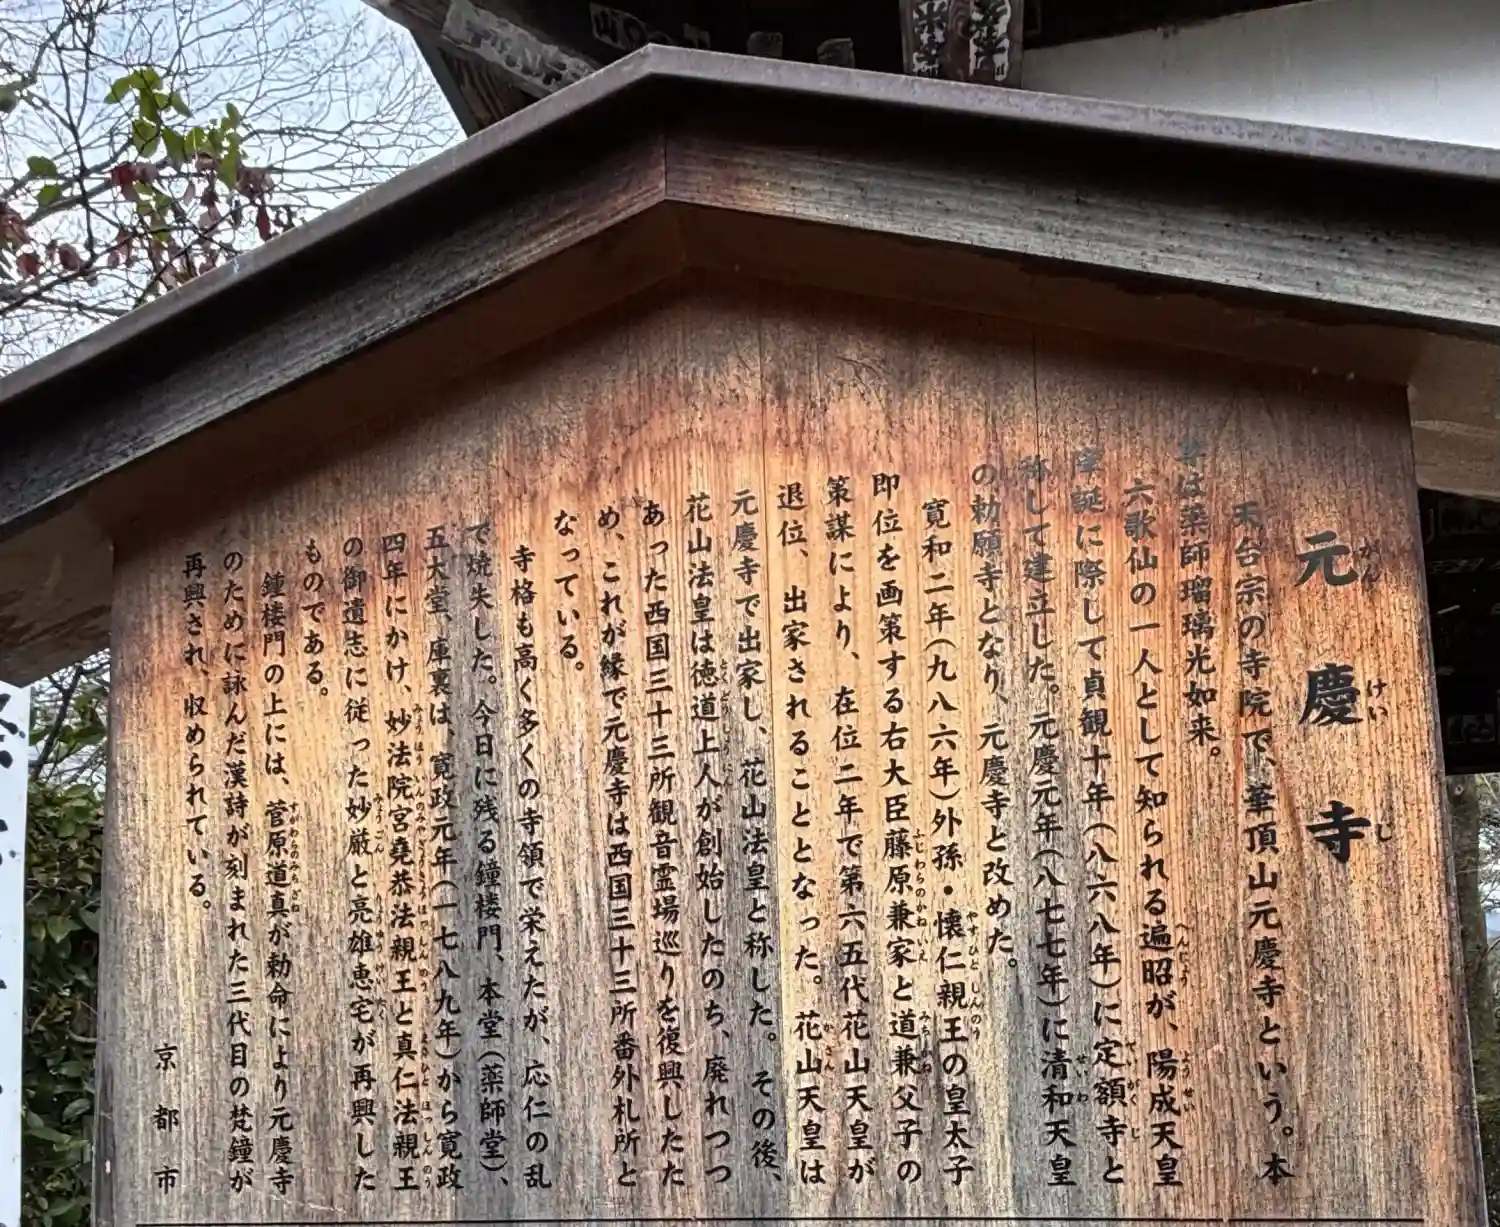 元慶寺
天台宗の寺院で、華頂山元慶寺という。本
尊は薬師瑠璃光如来。
六歌仙の一人として知られる遍昭が、陽成天皇
降誕に際して貞観十年(八六八年)に定額寺と
称して建立した。元慶元年(八七七年)に清和天皇
の勅願寺となり、元慶寺と改めた。
寛和二年(九八六年)外孫・懐仁親王の皇太子
即位を画策する右大臣藤原兼家と道兼父子の
策謀により、在位二年で第六五代花山天皇が
退位、出家されることとなった。花山天皇は
元慶寺で出家し、花山法皇と称した。その後、
花山法皇は徳道上人が創始したのち、廃れつつ
あった西国三十三所観音霊場巡りを復興したた
め、これが縁で元慶寺は西国三十三所番外札所と
なっている。
寺格も高く多くの寺領で栄えたが、応仁の乱
で焼失した。今日に残る鐘楼門、本堂(薬師堂)、
五大堂、庫裏は、寛政元年(一七八九年)から寛政
四年にかけ、妙法院宮堯恭法親王と真仁法親王
の御遺志に従った妙厳と亮雄恵宅が再興した
ものである。
鐘楼門の上には、菅原道真が勅命により元慶寺
のために詠んだ漢詩が刻まれた三代目の梵鐘が
再興され、収められている。
京都市